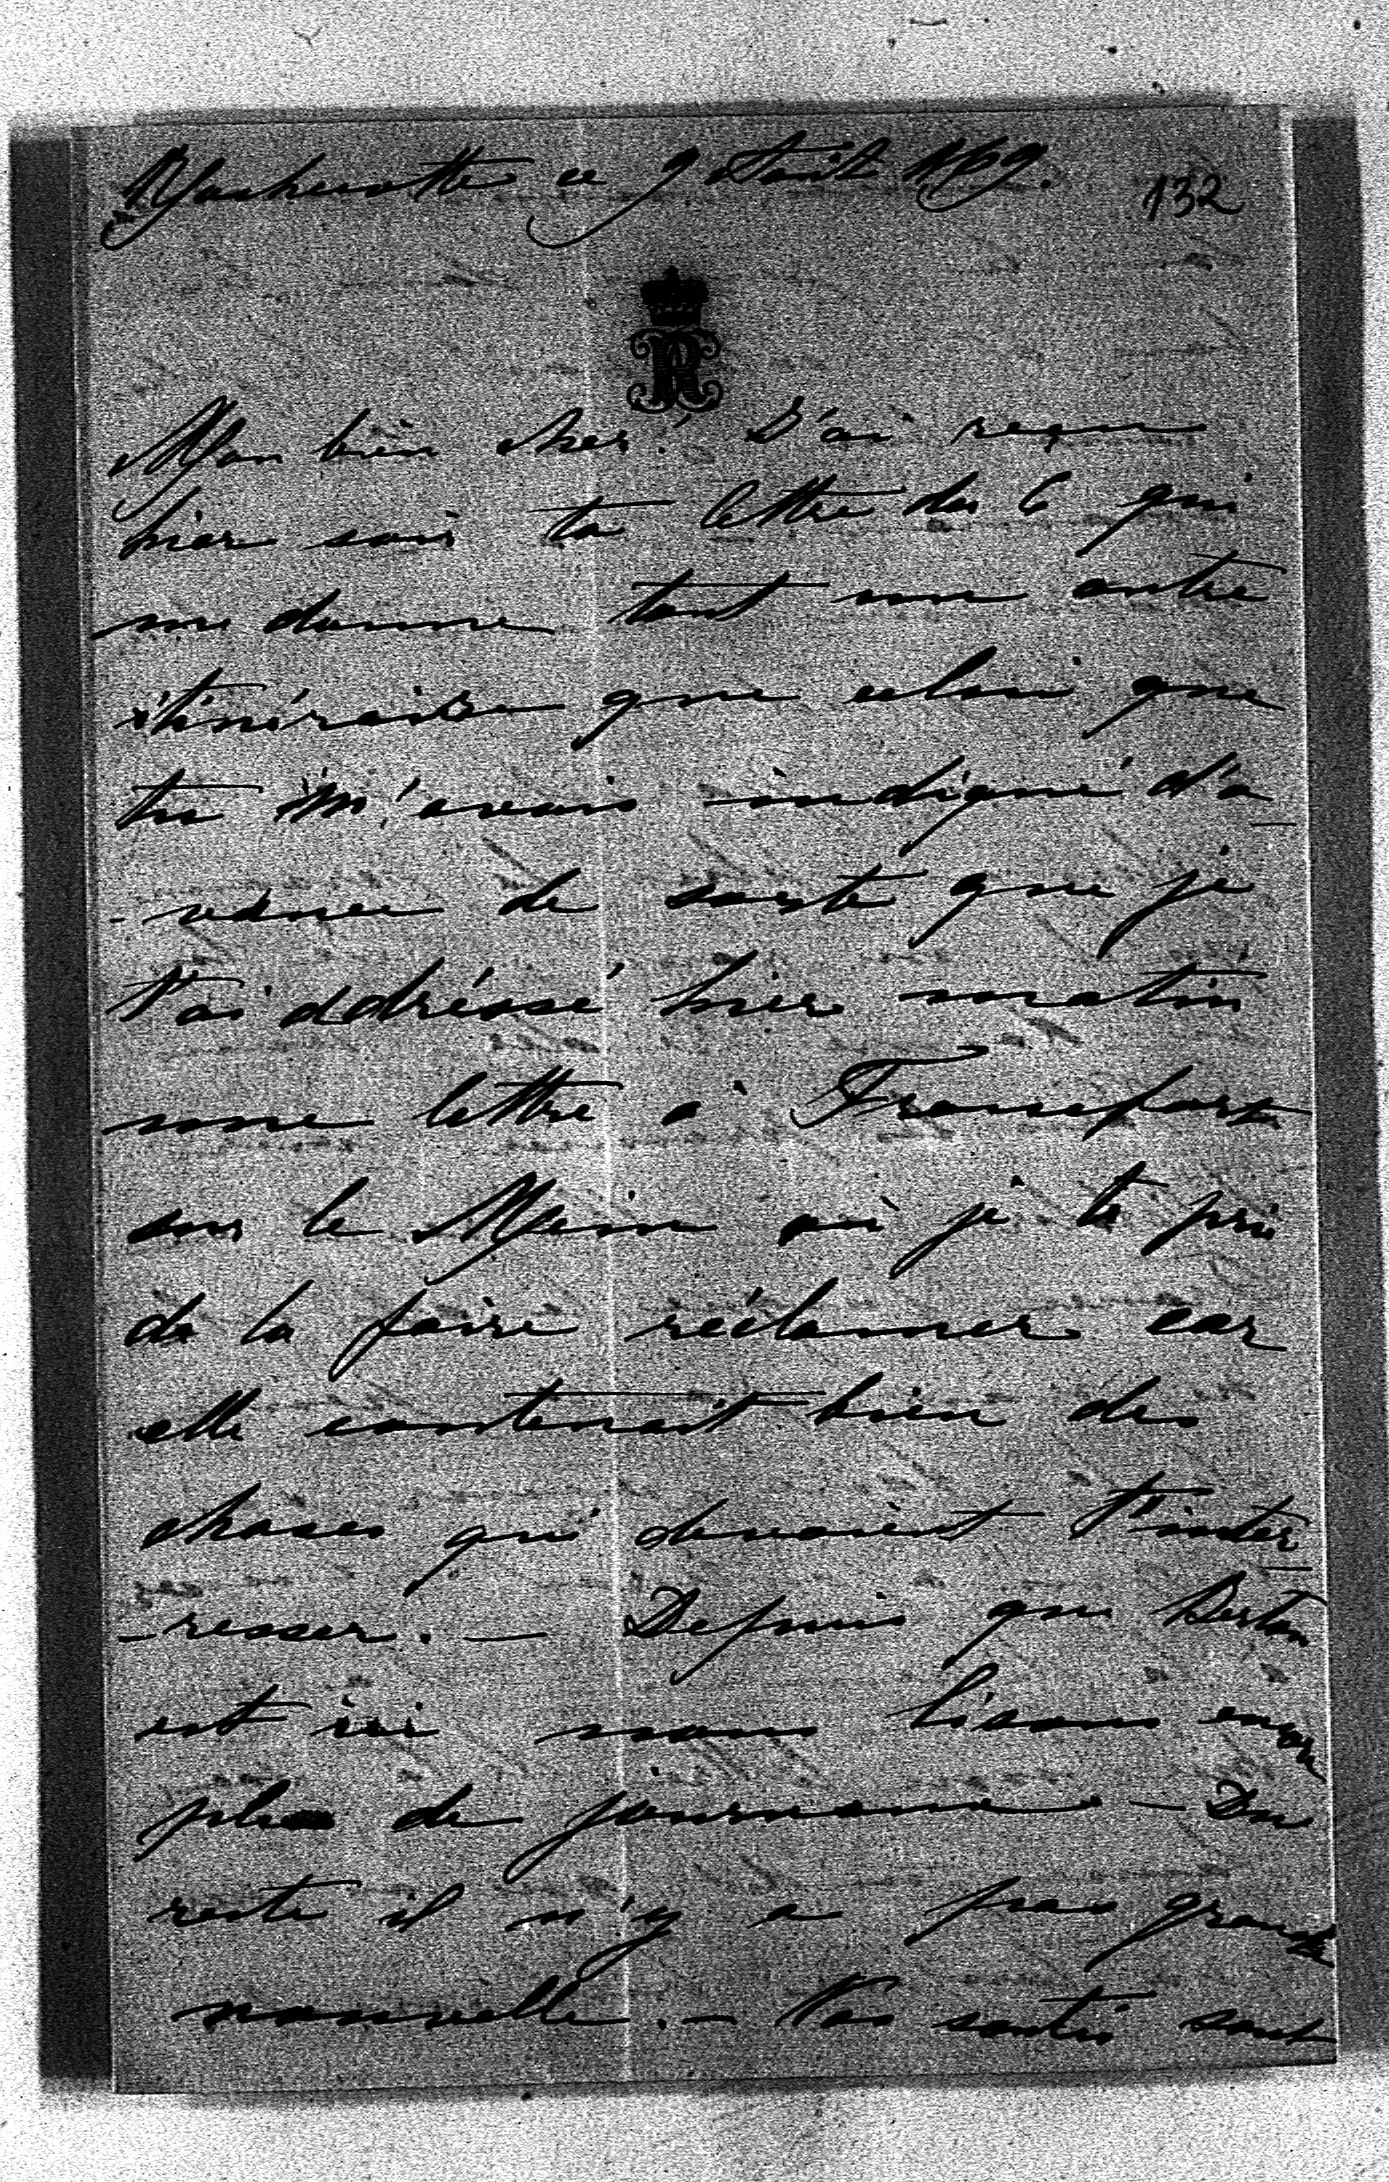 ce 9 Août 1869.
132
Mon bien cher! J'ai reçu
hier soir ta lettre du 6 qui
me donne tout une autre
itinéraire que celui que
tu m'avais indiqué d'a-
-vance de sorte que je
t'ai addréssé hier matin
une lettre à Francfort
sur le Mein où je te prie
de la faire réclamer car
elle contenait bien des
choses qui devaient t'inter-
-resser. — Depuis que
est ici nous lisons encore
plus de journeaux — Du
reste il n'y a pas grande
nouvelle. — Vos santés sont